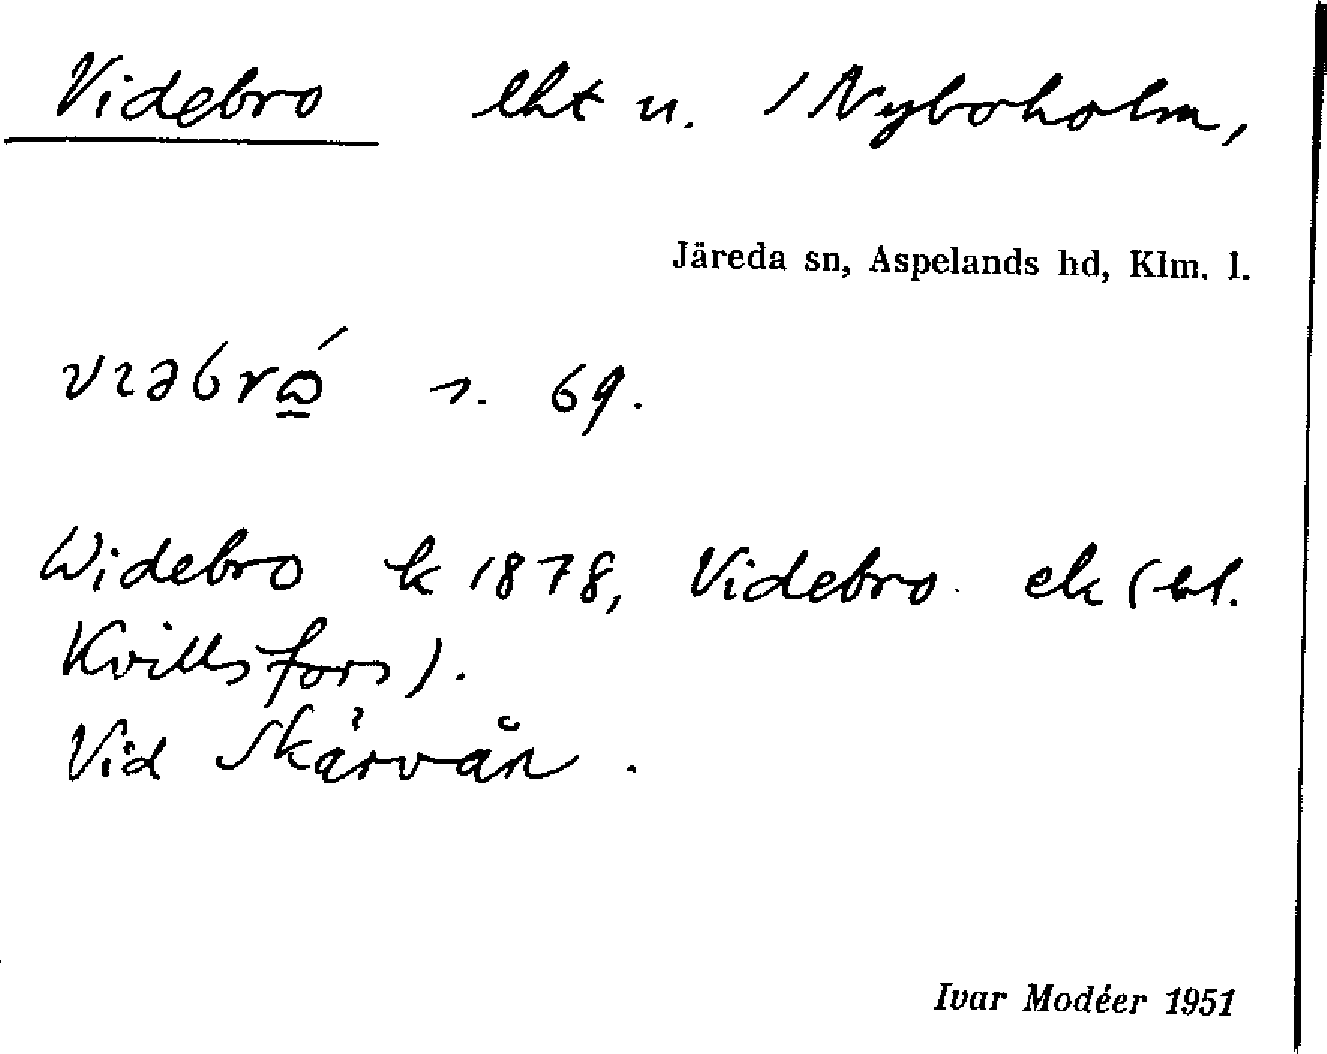 Videbro lht u. / Nyboholm,
Järeda sn, Aspelands hd, Klm. l.
vɩəbrɷ́ s. 69.
Widebro k 1878, Videbro ek (bl.
Kvillsfors).
Vid Skärvån.
Ivar Modéer 1951